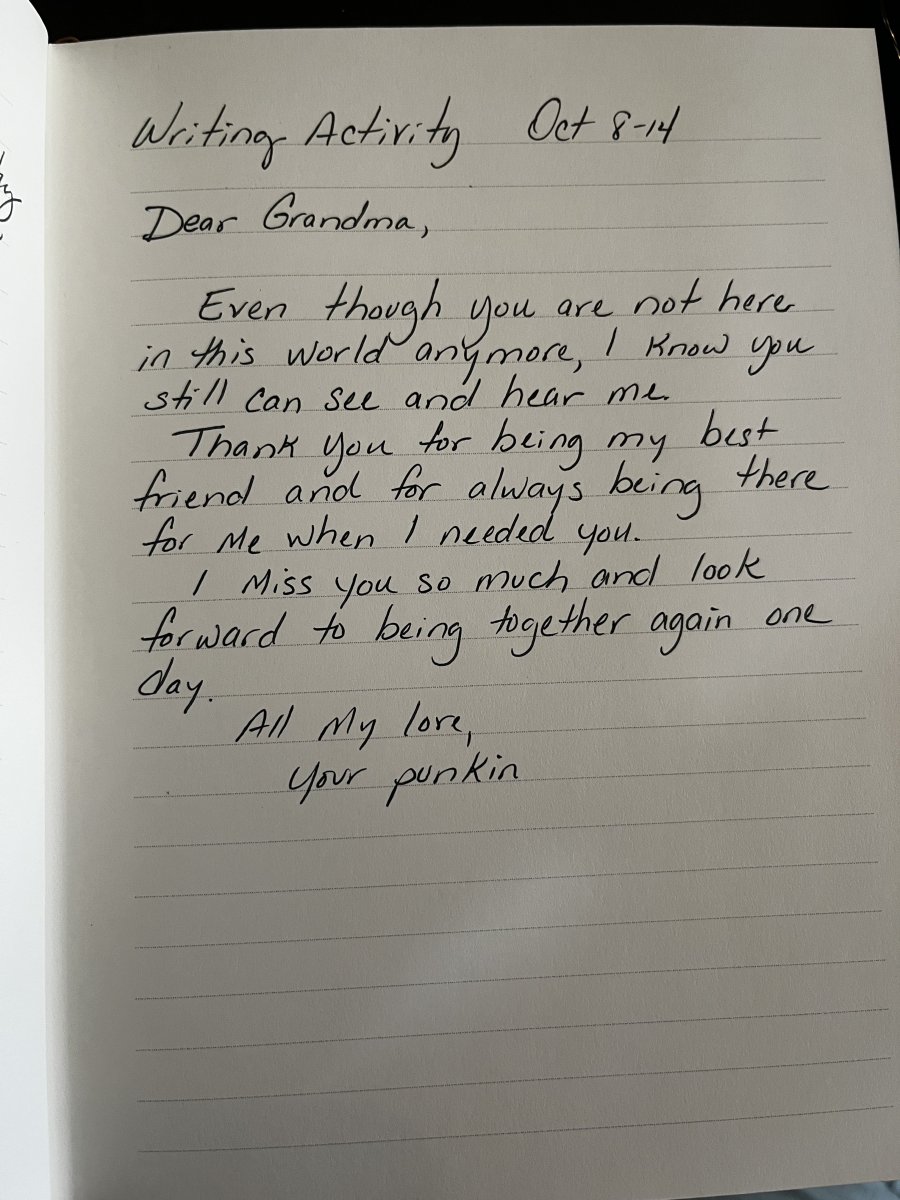 Writing Activity Oct 8-14
Dear Grandma,
Even though you are not here
in this world anymore, I know you
still can see and hear me.
Thank you for being my best
friend and for always being there
for me when I needed you.
I miss you so much and look
forward to being together again one
day.
All my love,
your punkin